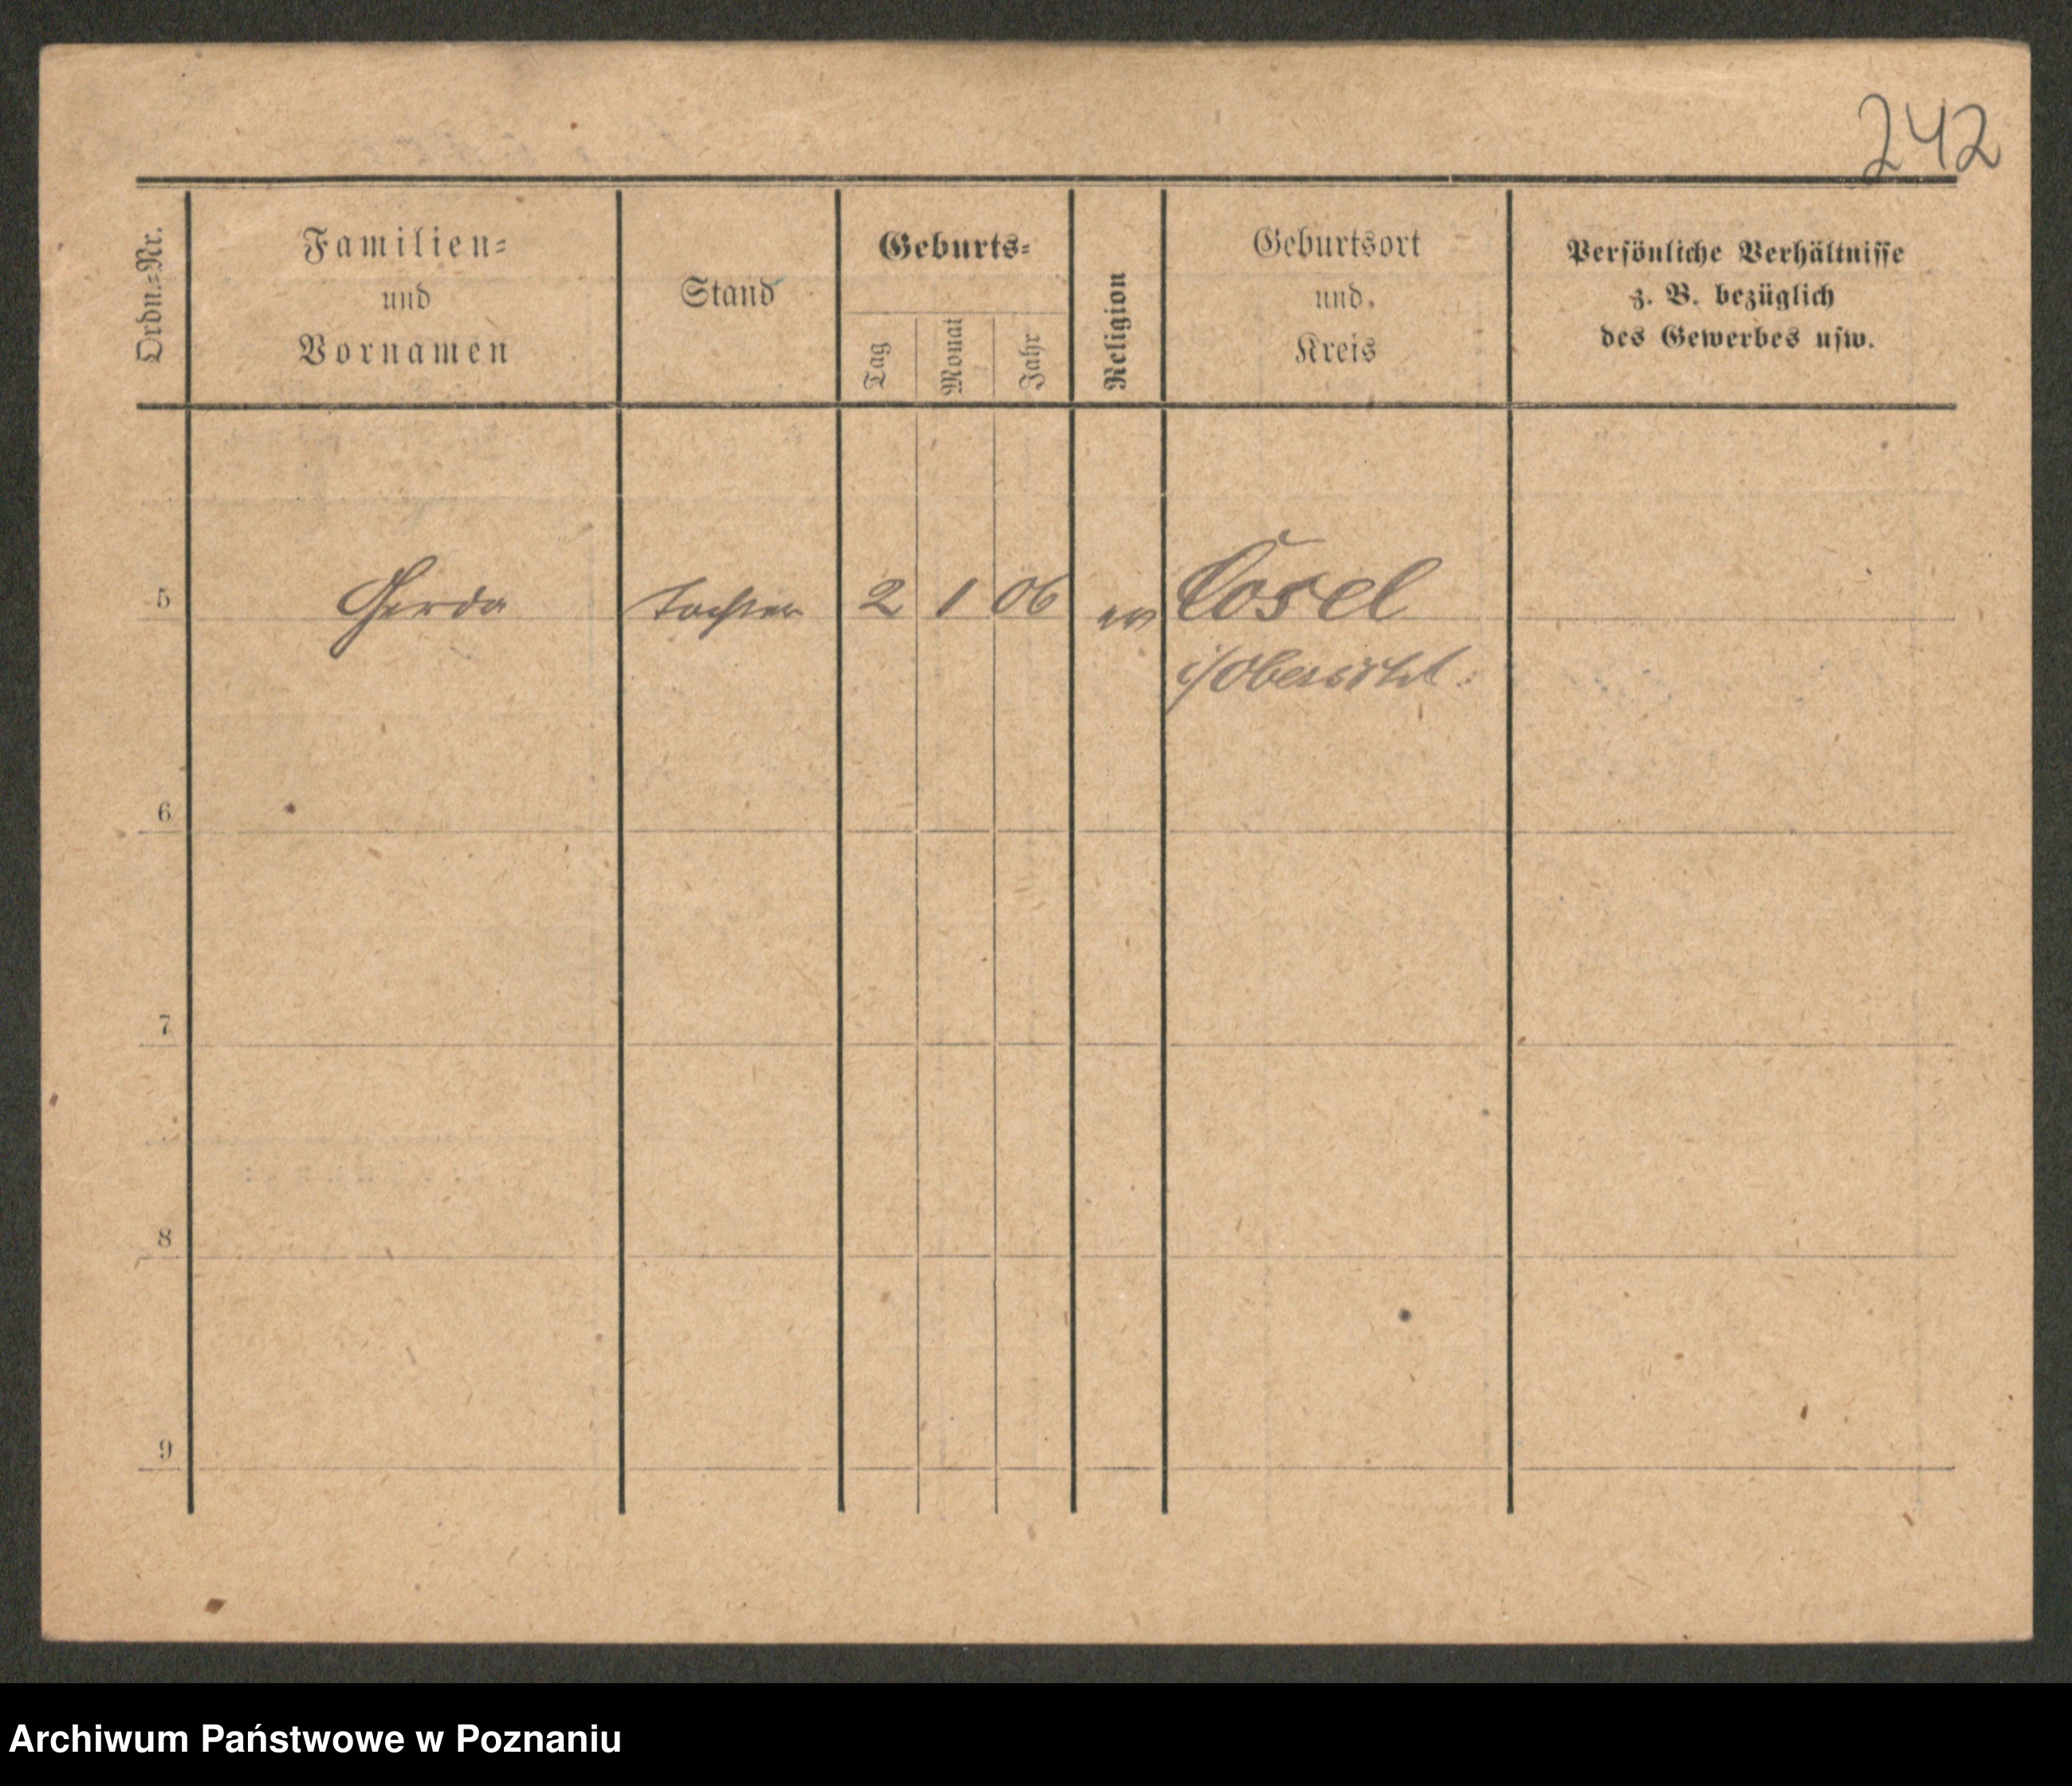 242
Ordn.=Nr.
Familien=
und
Vornamen
Stand
Geburts=
Tag
Monat
Jahr
Religion
Geburtsort
und
Kreis
Persönliche Verhältnisse
z. B. bezüglich
des Gewerbes usw.
5 Gerda Tochter 2 1 06 ev Cosel
i/Oberschl.
6
7
8
9
Archiwum Państwowe w Poznaniu